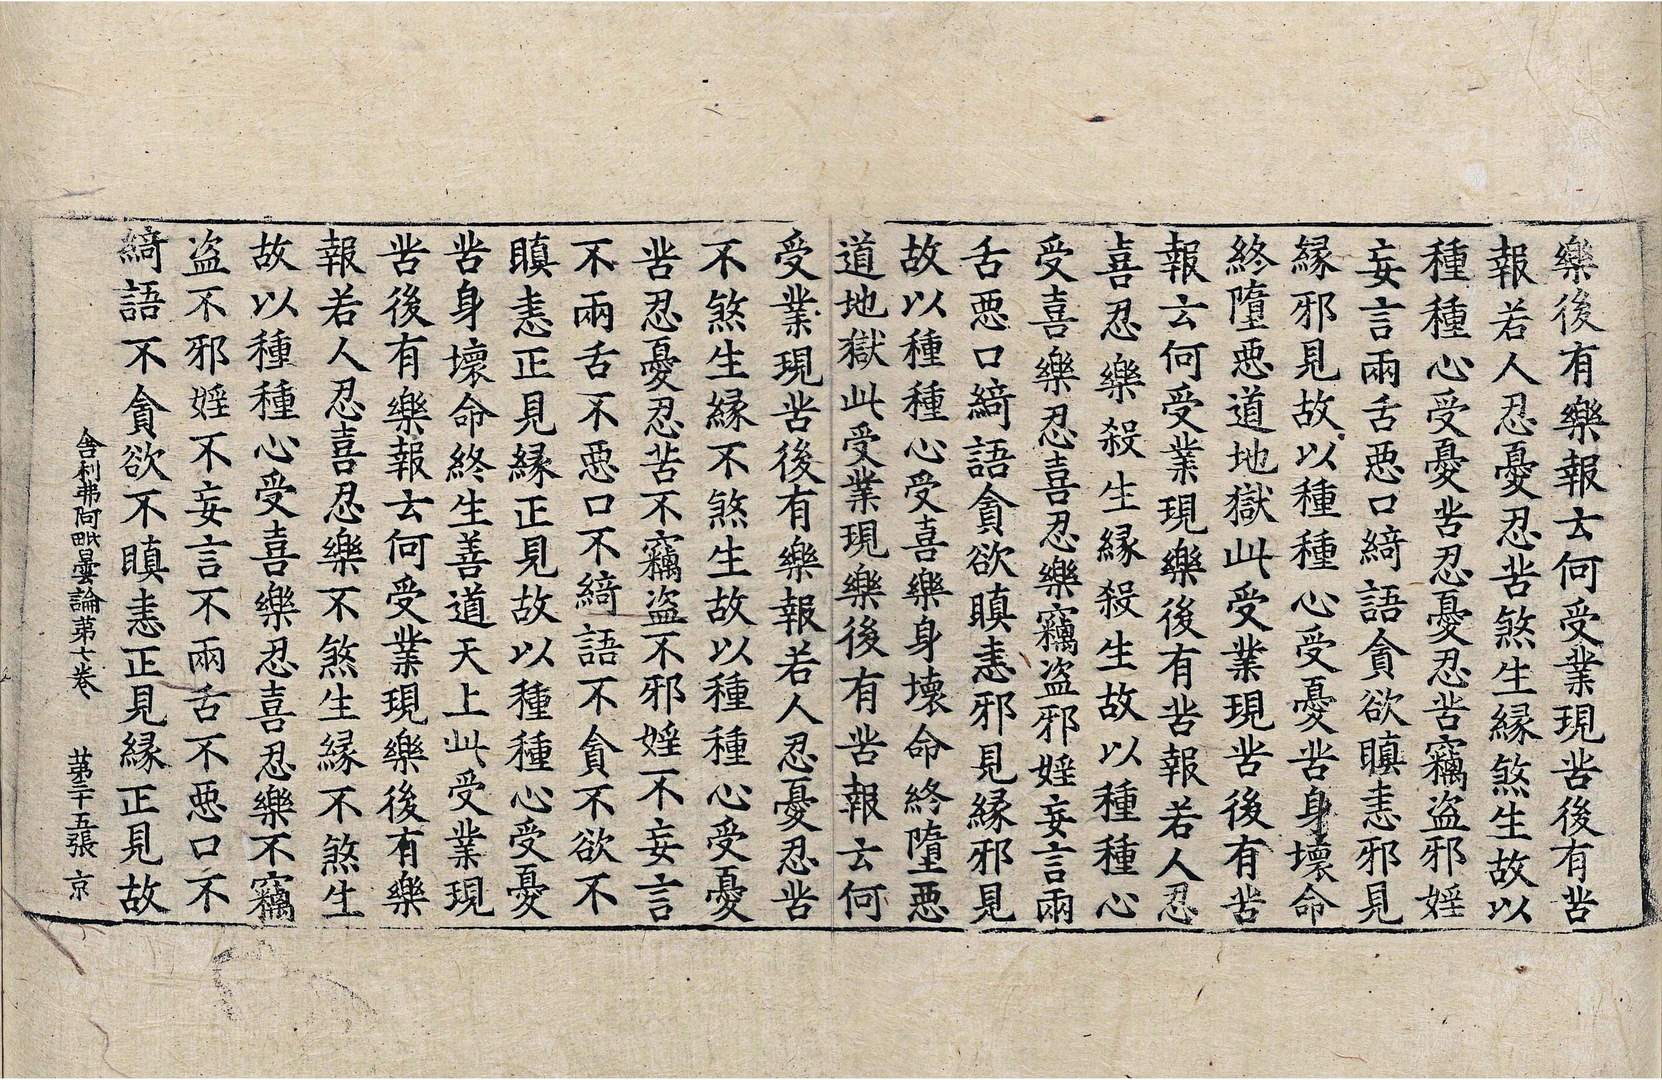 樂後有樂報云何受業現苦後有苦
報若人忍憂忍苦煞生緣煞生故以
種種心受憂苦忍憂忍苦竊盜邪婬
妄言兩舌惡口綺語貪欲瞋恚邪見
緣邪見故以種種心受憂苦身壞命
終墮惡道地獄此受業現苦後有苦
報云何受業現樂後有苦報若人忍
喜忍樂殺生緣殺生故以種種心
受喜樂忍喜忍樂竊盜邪婬妄言兩
舌惡口綺語貪欲瞋恚邪見緣邪見
故以種種心受喜樂身壞命終墮惡
道地獄此受業現樂後有苦報云何
受業現苦後有樂報若人忍憂忍苦
不煞生緣不煞生故以種種心受憂
苦忍憂忍苦不竊盜不邪婬不妄言
不兩舌不惡口不綺語不貪不欲不
瞋恚正見緣正見故以種種心受憂
苦身壞命終生善道天上此受業現
苦後有樂報云何受業現樂後有樂
報若人忍喜忍樂不煞生緣不煞生
故以種種心受喜樂忍喜忍樂不竊
盜不邪婬不妄言不兩舌不惡口不
綺語不貪欲不瞋恚正見緣正見故
舍利弗阿毗曇論第七卷 第二十五張 京